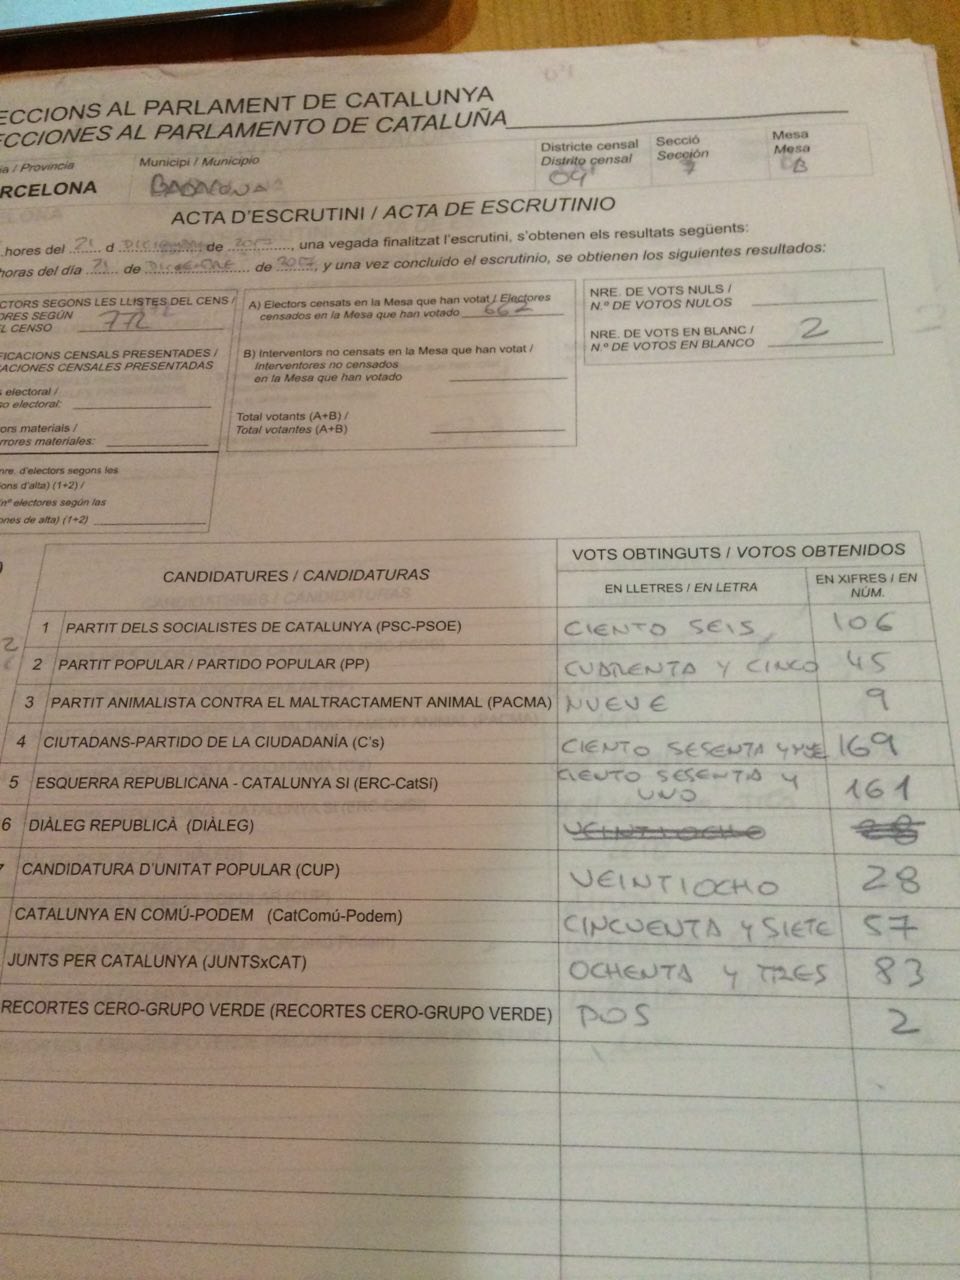 ECCIONS AL PARLAMENT DE CATALUNYA
ECCIONES AL PARLAMENTO DE CATALUÑA
a / Provincia
RCELONA
Municipi / Municipio
BADALONA
Districte censal
Distrito censal
04
Secció
Sección
7
Mesa
Mesa
B
ACTA D'ESCRUTINI / ACTA DE ESCRUTINIO
hores del 21 d DICIEMBRE de 2017, una vegada finalitzat l'escrutini, s'obtenen els resultats següents:
horas del día 21 de DICIEMBRE de 2017, y una vez concluido el escrutinio, se obtienen los siguientes resultados:
CTORS SEGONS LES LLISTES DEL CENS /
ORES SEGÚN
EL CENSO 772
FICACIONS CENSALS PRESENTADES /
CACIONES CENSALES PRESENTADAS
s electoral /
so electoral:
ors materials /
rrores materiales:
nre. d'electors segons les
ions d'alta) (1+2) /
nº electores según las
ones de alta) (1+2)
A) Electors censats en la Mesa que han votat / Electores
censados en la Mesa que han votado 662
B) Interventors no censats en la Mesa que han votat /
Interventores no censados
en la Mesa que han votado
Total votants (A+B) /
Total votantes (A+B)
NRE. DE VOTS NULS /
N.º DE VOTOS NULOS
NRE. DE VOTS EN BLANC /
N.º DE VOTOS EN BLANCO 2
CANDIDATURES / CANDIDATURAS
VOTS OBTINGUTS / VOTOS OBTENIDOS
EN LLETRES / EN LETRA
EN XIFRES / EN
NÚM.
1 PARTIT DELS SOCIALISTES DE CATALUNYA (PSC-PSOE) CIENTO SEIS 106
2 PARTIT POPULAR / PARTIDO POPULAR (PP) CUARENTA Y CINCO 45
3 PARTIT ANIMALISTA CONTRA EL MALTRACTAMENT ANIMAL (PACMA) NUEVE 9
4 CIUTADANS-PARTIDO DE LA CIUDADANÍA (C's) CIENTO SESENTA Y 169
5 ESQUERRA REPUBLICANA - CATALUNYA SI (ERC-CatSí) CIENTO SESENTA Y
UNO 161
6 DIÀLEG REPUBLICÀ (DIÀLEG) VEINTIOCHO 28
7 CANDIDATURA D'UNITAT POPULAR (CUP) VEINTIOCHO 28
CATALUNYA EN COMÚ-PODEM (CatComú-Podem) CINCUENTA Y SIETE 57
JUNTS PER CATALUNYA (JUNTSxCAT) OCHENTA Y TRES 83
RECORTES CERO-GRUPO VERDE (RECORTES CERO-GRUPO VERDE) DOS 2